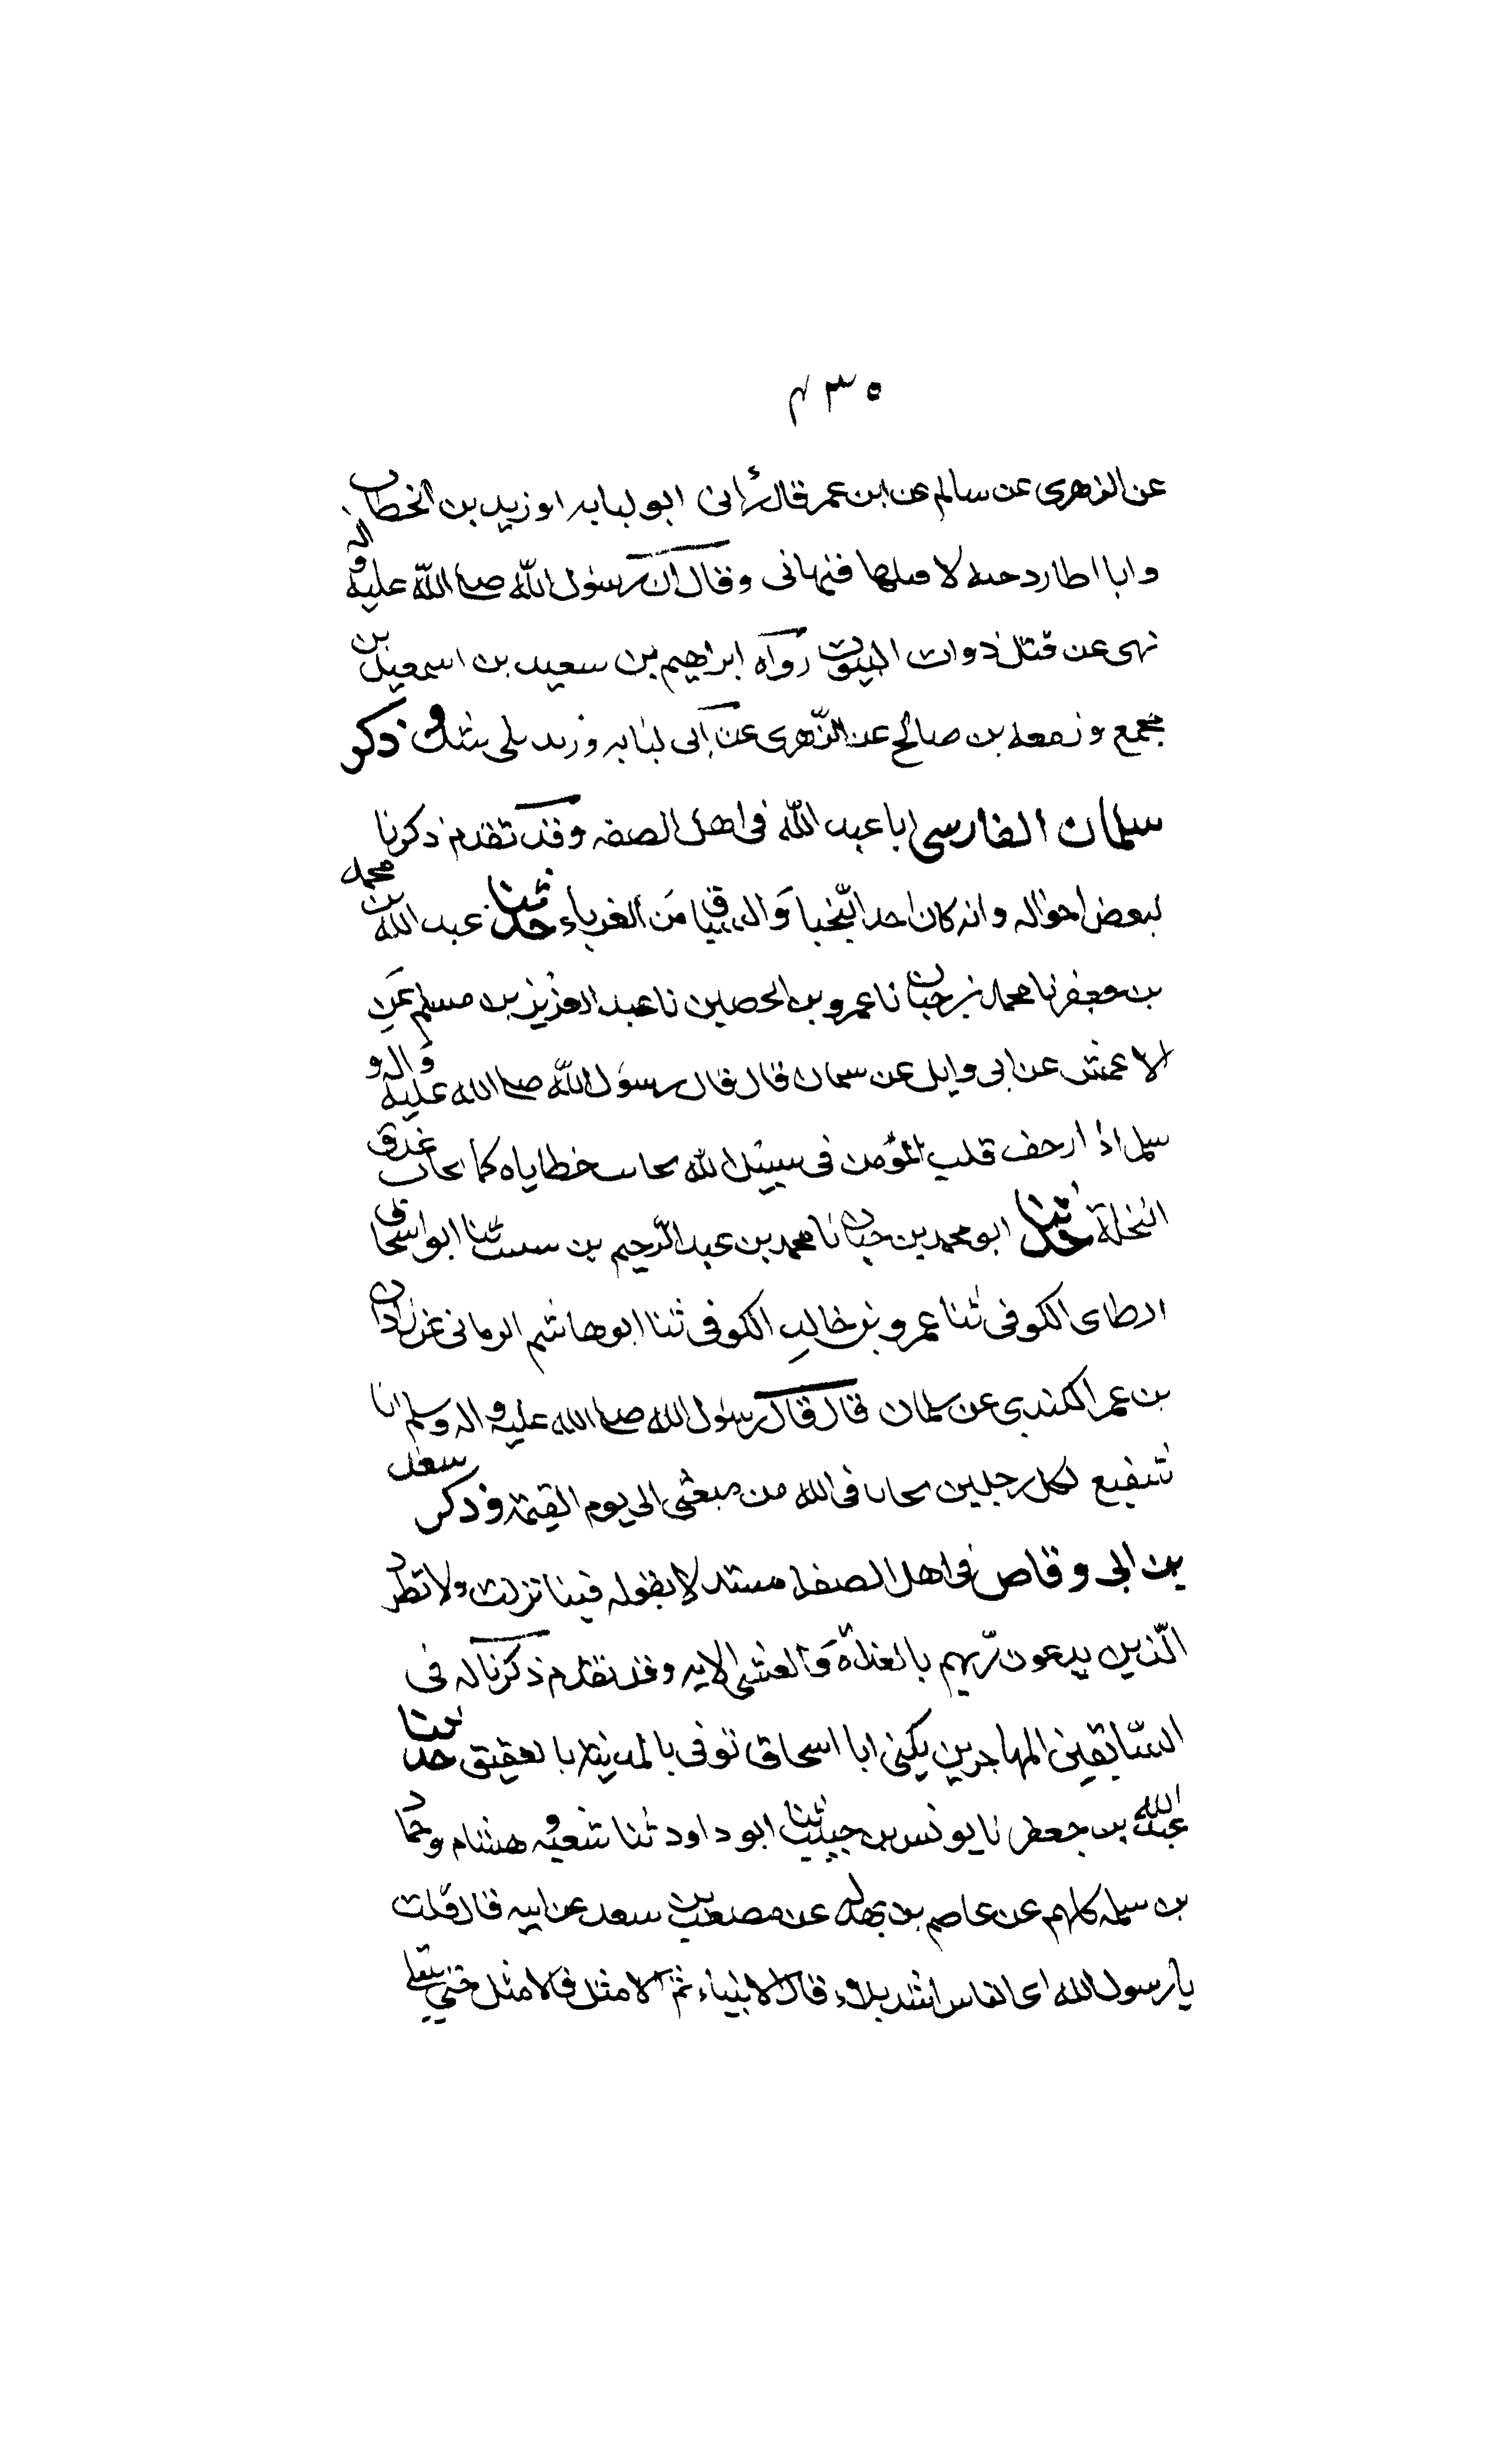 ٤٣٥
عن الزهرى عن سالم عن ابن عمر قال رانى ابو لبابه او زيد بن الخطاب
وانا اطارد حيه لاقتلها فنهانى وقال ان رسول الله صلى الله عليه واله
نهى عن قتل ذوات البيوت رواه ابراهيم بن سعيد بن اسمعيل بن
مجمع وزمعه بن صالح عن الزهرى عن ابى لبابه وزيد بلى شك و ذكر
سلمان الفارسى ابا عبد الله فى اهل الصفه وقد تقدم ذكرنا
لبعض احواله وانه كان احد النجبا و من الغرباء حدثنا عبد الله بن محمد
بن جعفر نا محمد بن حبان نا عمرو بن الحصين نا عبد العزيز بن مسلم عن
الاعمش عن ابى وايل عن سمان قال قال رسول الله صلى الله عليه واله و
سلم اذا ارحف قلب المؤمن فى سبيل الله تحات خطاياه كما تحات عذق
النخلة حدثنا ابو محمد بن حبان نا محمد بن عبد الرحيم بن ثنا ابو اسحاق
الطاى الكوفى ثنا عمرو بن خالد الكوفى ثنا ابو هاشم الرمانى عن زادان
بن عمر الكندى عن سلمان قال قال رسول الله صلى الله عليه و اله وسلم انا
شفيع لكل رجلين تحابا فى الله من مبعثى الى يوم القيمة و ذكر سعد
بن ابى وقاص فى اهل الصفه لا بقوله فينا نزلت ولا تطرد
الذين يدعون ربهم بالغداة والعشى الايه وقد تقدم ذكرنا له فى
السابقين المهاجرين يكنى ابا اسحاق توفى بالمدينه بالعقيق حدثنا
عبد الله بن جعفر نا يونس بن حبيب ثنا ابو داود ثنا شعبه و هشام وحماد
بن سلمه كلهم عن عاصم بن بهدله عن مصعب بن سعد عن ابيه قال قلت
يا رسول الله اى الناس اشد بلاء قال الانبياء ثم الامثل فالامثل حتى يبتلى